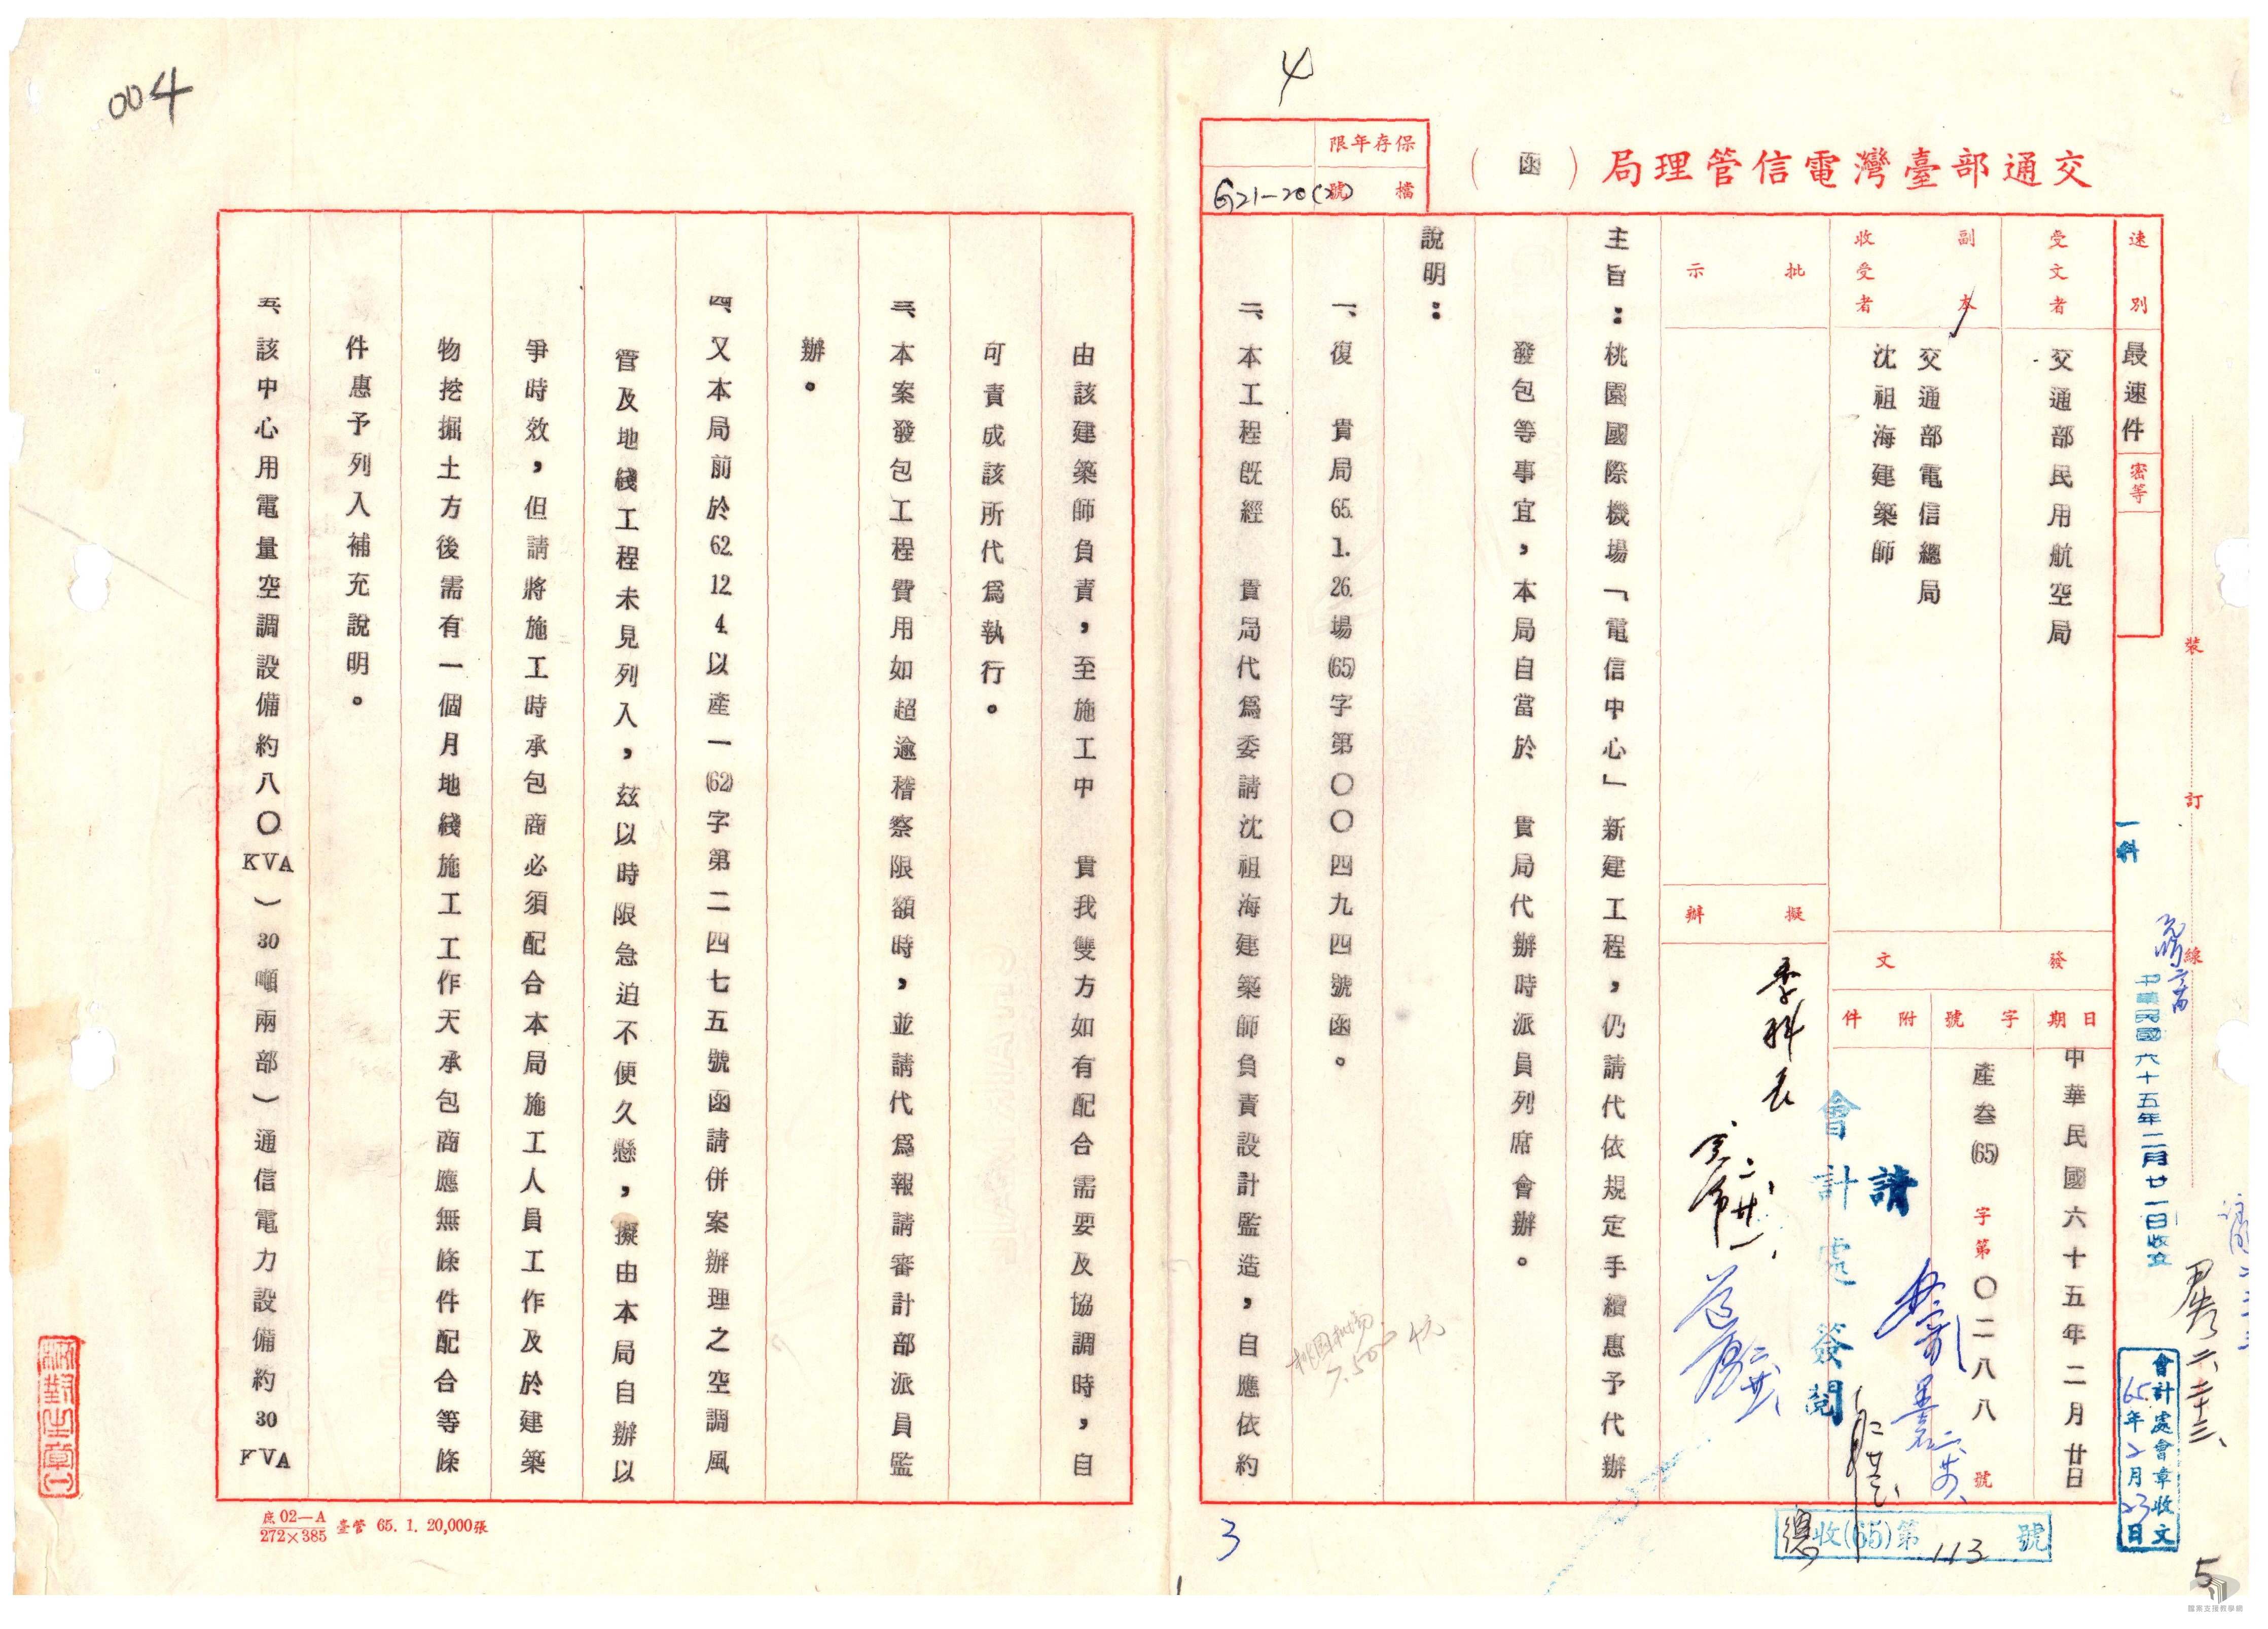 004
4
交通部臺灣電信管理局（函）
保存年限
檔號
G21-20(2)
速別
最速件
密等
受文者
交通部民用航空局
副本收受者
交通部電信總局
沈祖海建築師
批示
擬辦
發文
日期
中華民國六十五年二月廿日
字號
產叁(65)字第〇二八八號
附件
主旨：桃園國際機場「電信中心」新建工程，仍請代依規定手續惠予代辦
發包等事宜，本局自當於　貴局代辦時派員列席會辦。
說明：
一、復　貴局65.1.26.場(65)字第〇〇四九四號函。
二、本工程既經　貴局代為委請沈祖海建築師負責設計監造，自應依約
由該建築師負責，至施工中　貴我雙方如有配合需要及協調時，自
可責成該所代為執行。
三、本案發包工程費用如超逾稽察限額時，並請代為報請審計部派員監
辦。
四、又本局前於62.12.4.以產一(62)字第二四七五號函請併案辦理之空調風
管及地綫工程未見列入，茲以時限急迫不便久懸，擬由本局自辦以
爭時效，但請將施工時承包商必須配合本局施工人員工作及於建築
物挖掘土方後需有一個月地綫施工工作天承包商應無條件配合等條
件惠予列入補充說明。
五、該中心用電量空調設備約八〇KVA）30噸兩部）通信電力設備約30KVA
裝訂線
一科
中華民國六十五年二月廿一日收文
李科長
請會計處簽閱
桃園机场
7.50
會計處會章收文
65年2月23日
總收(65)第113號
校對生章(一)
庶02—A
272×385
臺管 65. 1. 20,000張
3
5
檔案支援教學網